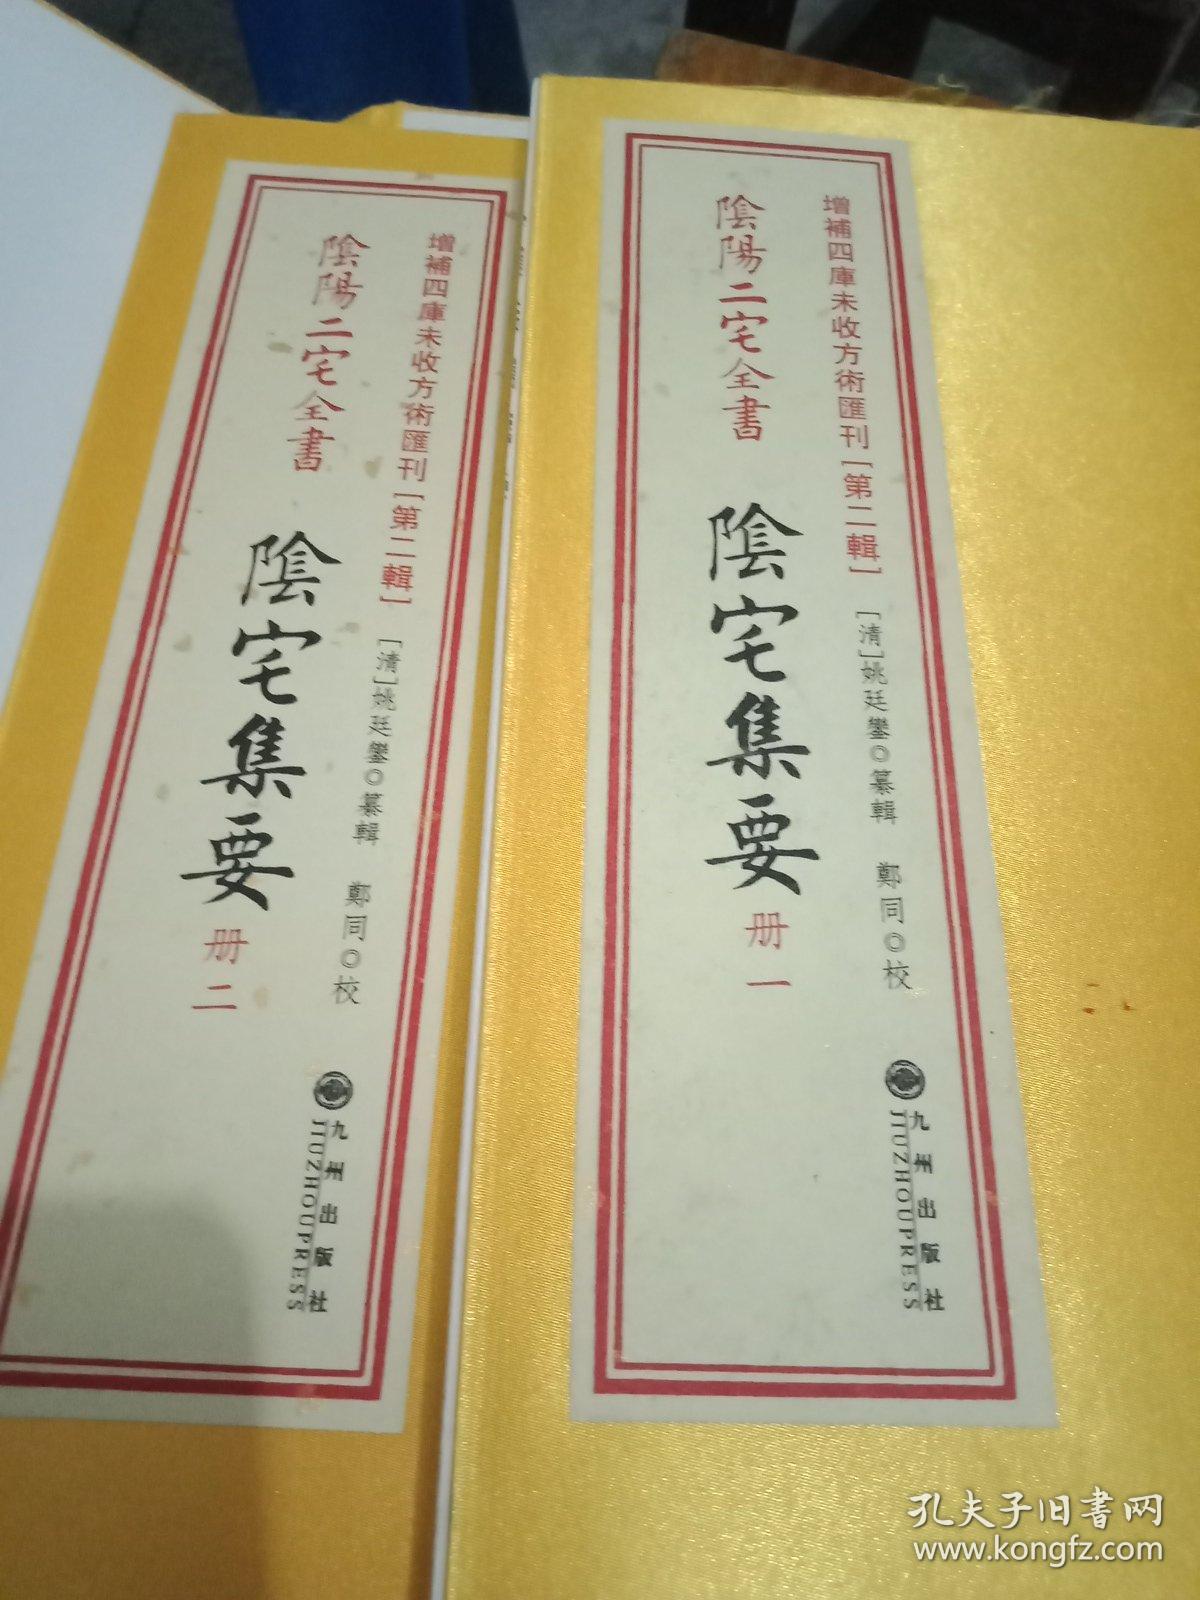 增補四庫未收方術匯刊[第二輯]
陰陽二宅全書
陰宅集要
册一
[清]姚廷鑾◎纂輯 鄭同◎校
九州出版社
JIUZHOUPRESS
增補四庫未收方術匯刊[第二輯]
陰陽二宅全書
陰宅集要
册二
[清]姚廷鑾◎纂輯 鄭同◎校
九州出版社
JIUZHOUPRESS
孔夫子旧书网
www.kongfz.com